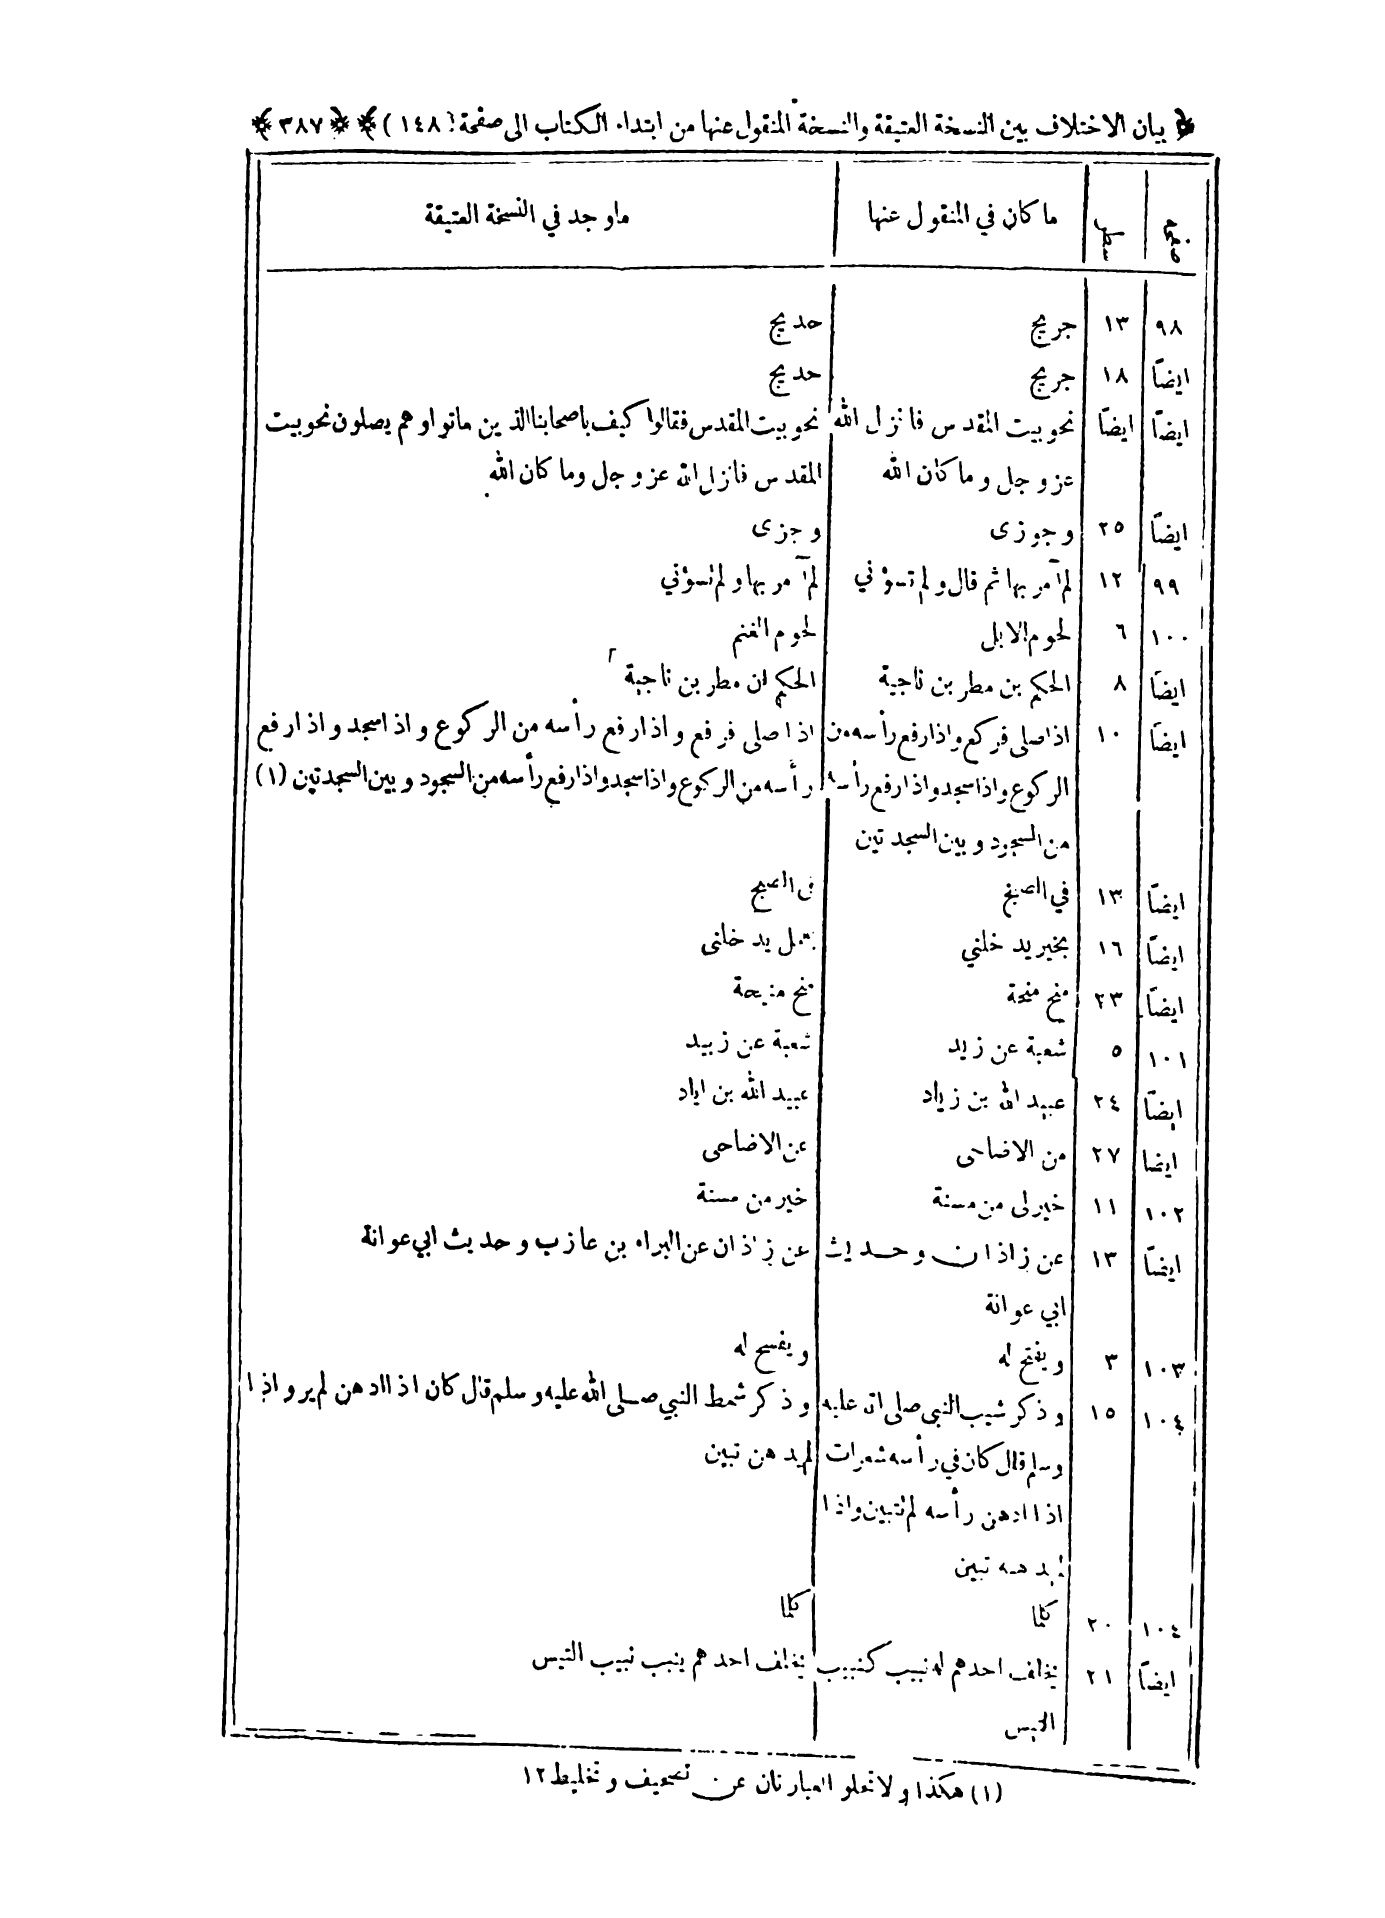 ﴿ بيان الاختلاف بين النسخة العتيقة والنسخة المنقول عنها من ابتداء الكتاب الى صفحة (١٤٨) ﴾ ﴿ ٣٨٧ ﴾
صفحه سطر ما كان في المنقول عنها ماوجد في النسخة العتيقة
٩٨ ١٣ جريج حديج
ايضاً ١٨ جريج حديج
ايضاً ايضاً نحوبيت المقدس فانزل الله نحوبيت المقدس فقالوا كيف باصحابنا الذين ماتوا وهم يصلون نحوبيت
عز وجل وما كان الله المقدس فانزل الله عز وجل وما كان الله
ايضاً ٢٥ وجوزى وجزى
٩٩ ١٢ لم آمر بها ثم قال ولم تسؤني لم آمر بها ولم تسؤني
١٠٠ ٦ لحوم الابل لحوم الغنم
ايضاً ٨ الحكم بن مطر بن ناجية الحكم ان مطر بن ناجية
ايضاً ١٠ اذا صلى فركع واذا رفع رأسه من اذا صلى فرفع واذا رفع رأسه من الركوع واذا سجد واذا رفع
الركوع واذا سجد واذا رفع رأسه رأسه من الركوع واذا سجد واذا رفع رأسه من السجود وبين السجدتين (١)
من السجود وبين السجدتين
ايضاً ١٣ في الصبح في الصبح
ايضاً ١٦ بخير يد خلني يد خلنى
ايضاً ٢٣ منح منحة منح منيحة
١٠١ ٥ شعبة عن زيد شعبة عن زبيد
ايضاً ٢٤ عبيد الله بن زياد عبيد الله بن اياد
ايضا ٢٧ من الاضاحى عن الاضاحى
١٠٢ ١١ خير لى من مسنة خير من مسنة
ايضاً ١٣ عن زاذان وحديث عن زاذان عن البراء بن عازب وحديث ابي عوانة
ابي عوانة
١٠٣ ٣ ويفتح له ويفسح له
١٠٤ ١٥ وذكر شيب النبي صلى الله عليه وذكر شمط النبي صلى الله عليه وسلم قال كان اذا ادهن لم ير واذا
وسلم قال كان في رأسه شعرات لم يدهن تبين
اذا ادهن رأسه لم تتبين واذا
لم يدهنه تبين
١٠٤ ٢٠ كلما كلما
ايضاً ٢١ يخلف احدهم له نبيب كنبيب يخلف احدهم ينبب نبيب التيس
التيس
(١) هكذا ولا تخلو العبارتان عن تصحيف وتخليط ١٢